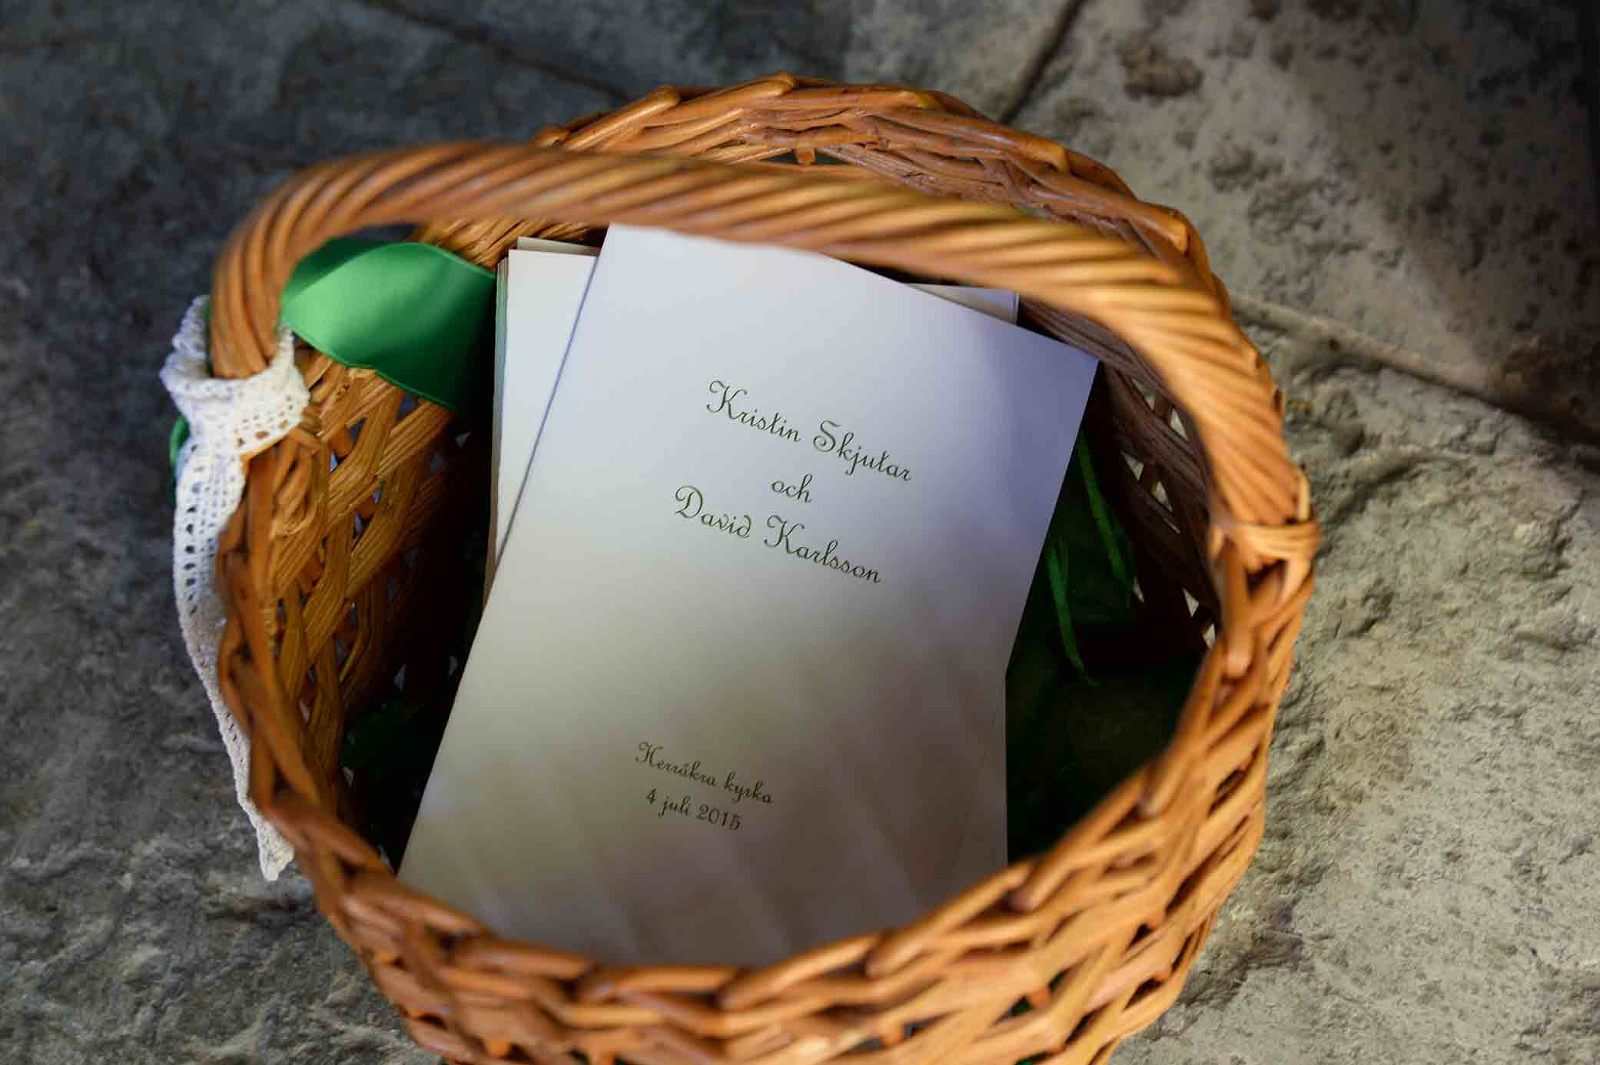 Kristin Skjutar
och
David Karlsson
Herråkra kyrka
4 juli 2015